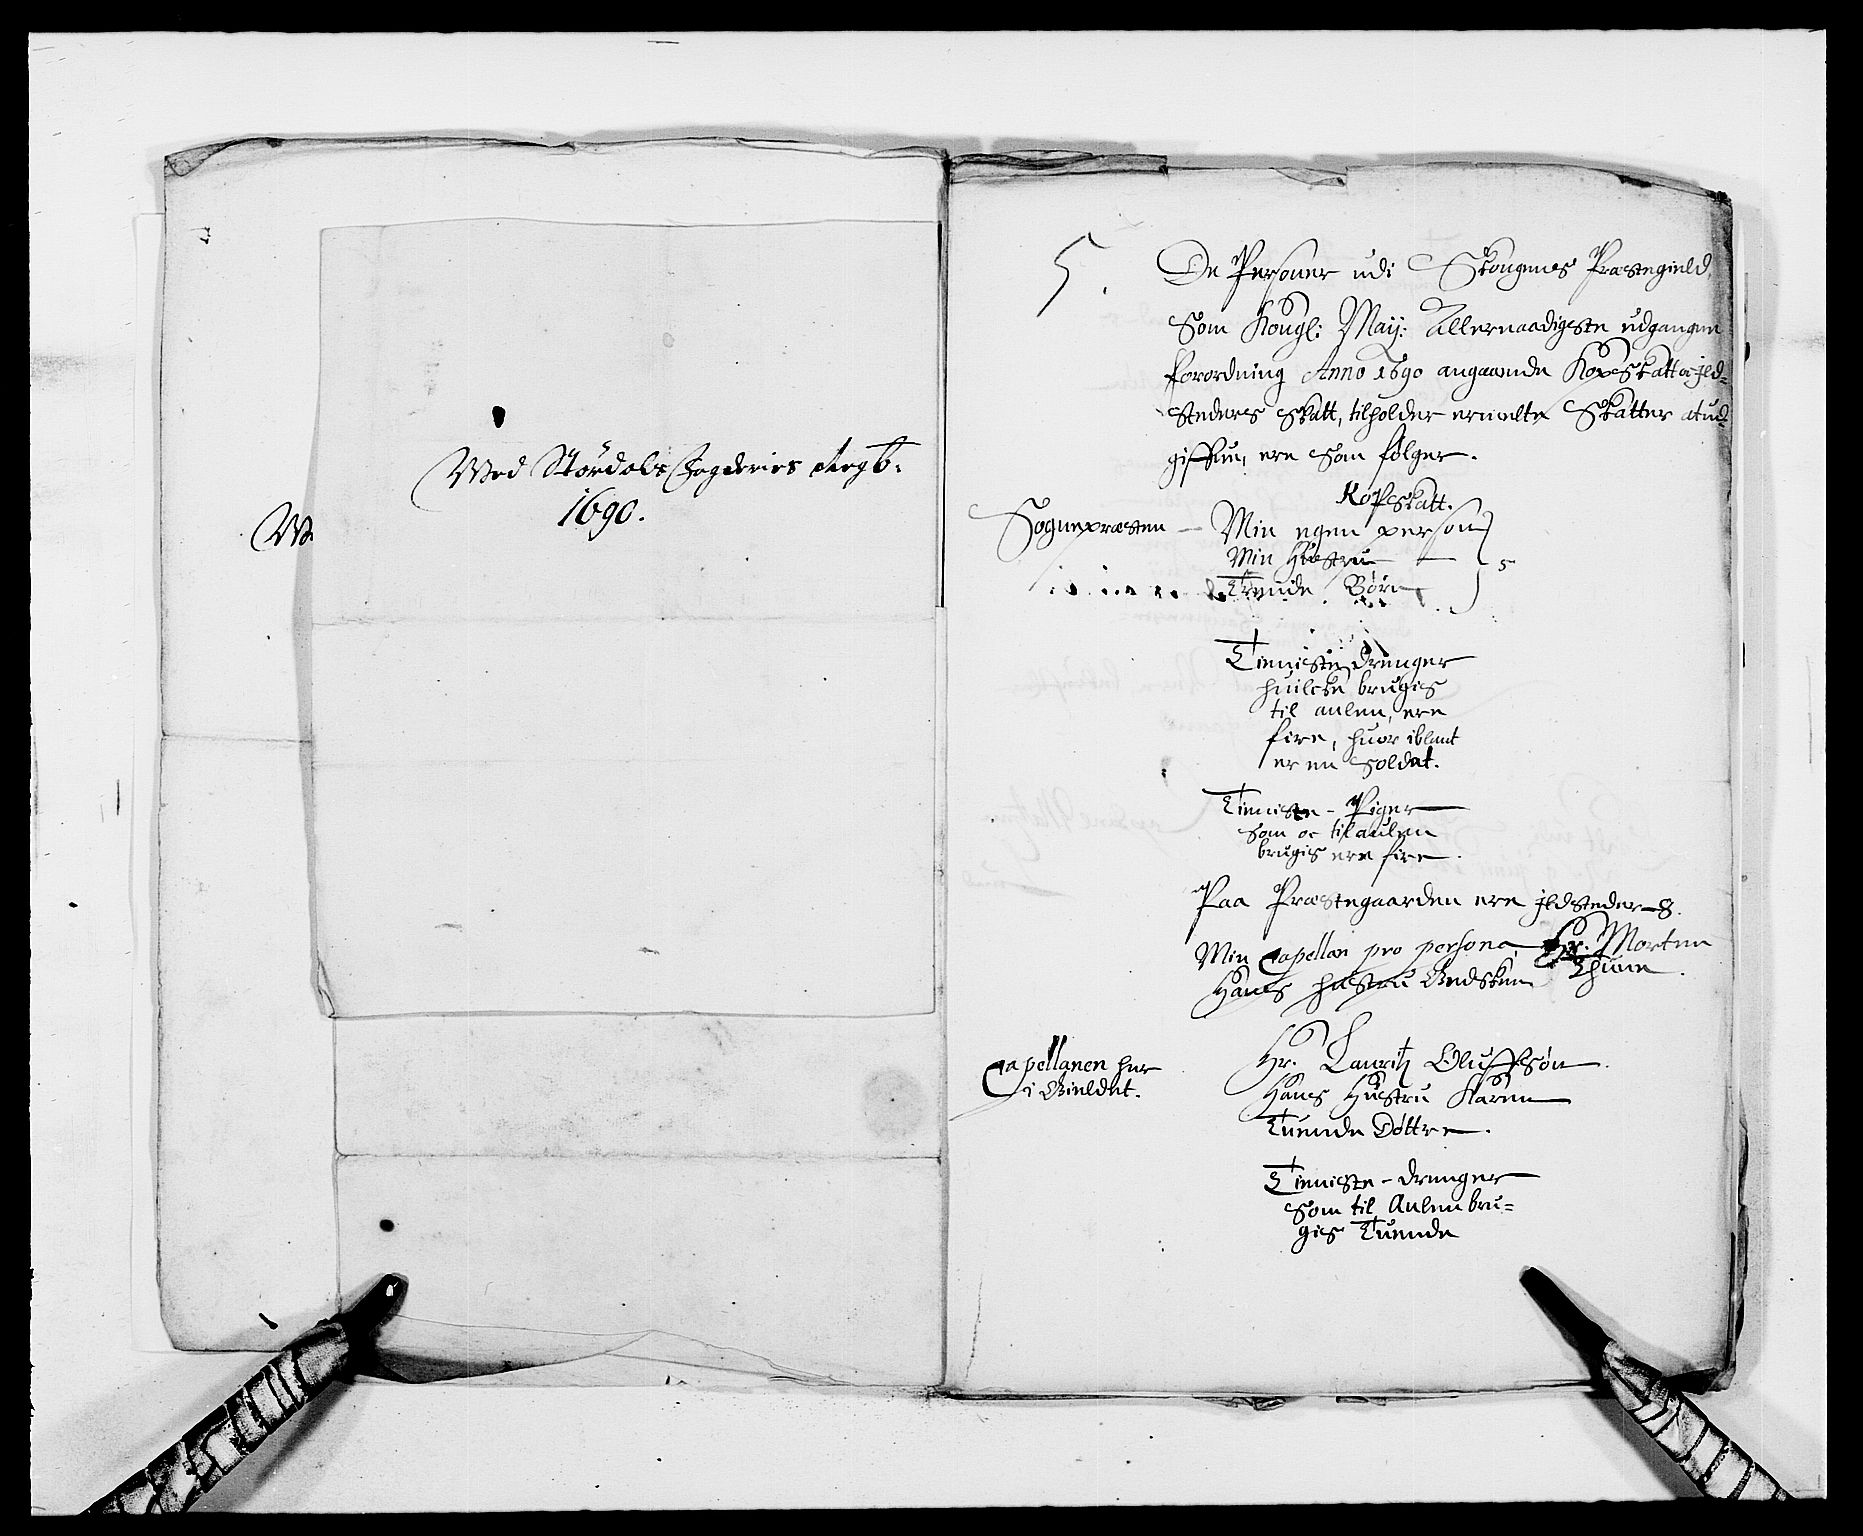 Wed Stördals Fogderies Regb:
1690.
We
5.
De Personer udi Skougnes Præstegield,
Som Kongl: Maij: Allernaadigste udgangne
forordning Anno 1690 angaaende KopSkatt oc jld=
steders Skatt, tilholder ermelte Skatter at ud=
giffue, ere Som følger.
KopSkatt.
Sognepræsten — Min egen person
Min Hustru — 5
Trende Børn
Tieniste drenger
huilcke brugis
til aulen, ere
fire, huor iblant
er en Soldat.
Tieniste - Piger
Som oc til aulen
brugis ere fire.
Paa Præstegaarden ere jldsteder - 8.
Min Capellan pro persona Hr. Morten
Thune.
Hans hustru Gidsken
Capellanen her
i Gieldet.
Hr. Lauritz Oluffsøn.
Hans Hustru Karen
Tuende Døttre.
Tieniste - drenger
Som til Aulen bru=
gis Tuende